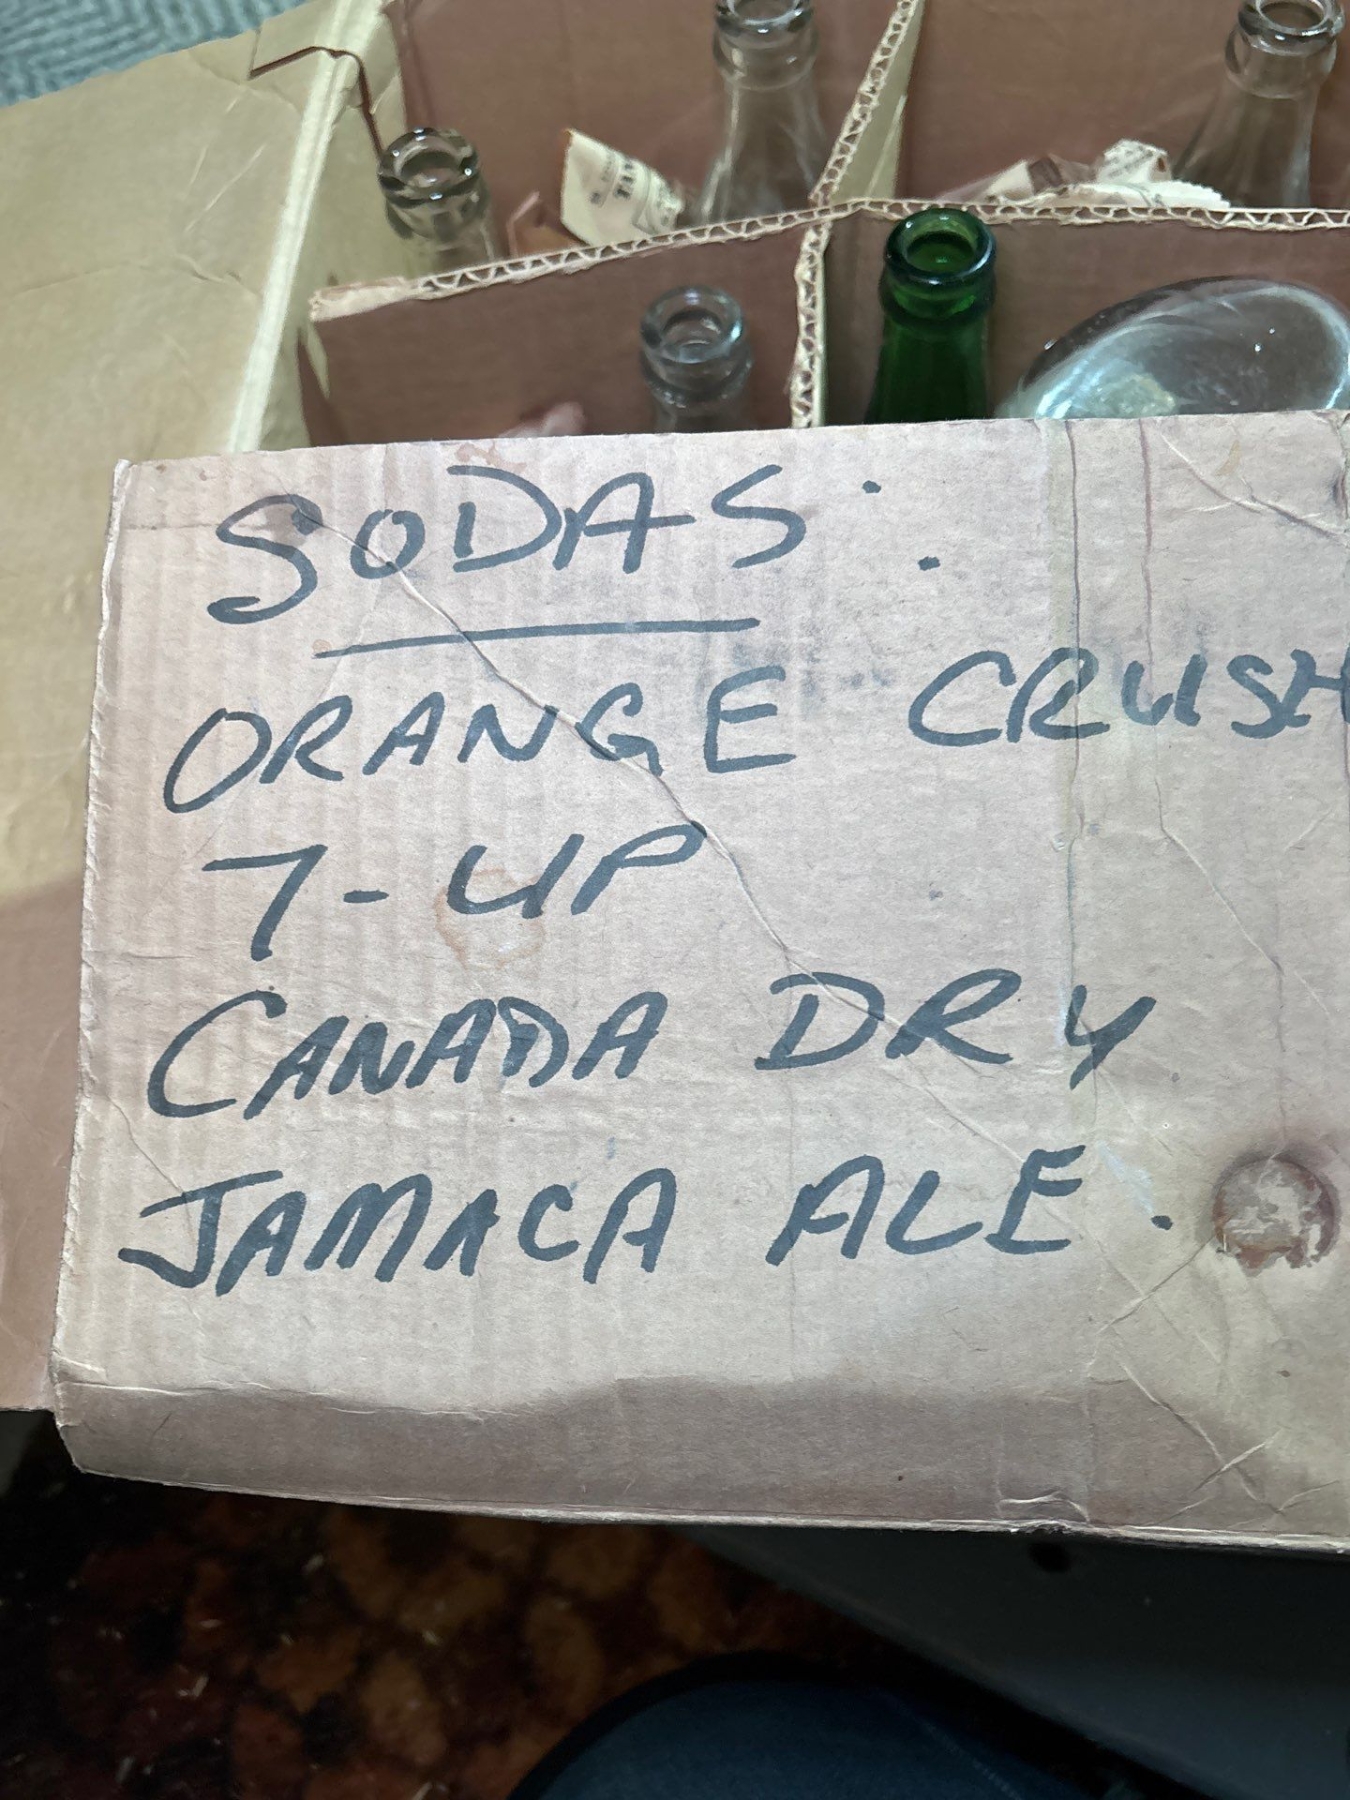 SODAS:
ORANGE CRUSH
7-UP
CANADA DRY
JAMACA ALE.